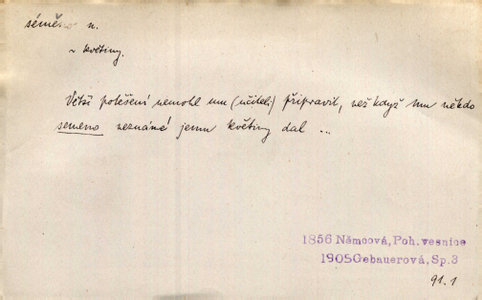 séměno n.
~ květiny.
Větší potěšení nemohl mu (učiteli) připravit, než když mu někdo
semeno neznámé jemu květiny dal ...
1856 Němcová, Poh. vesnice
1905 Gebauerová, Sp. 3
91.1